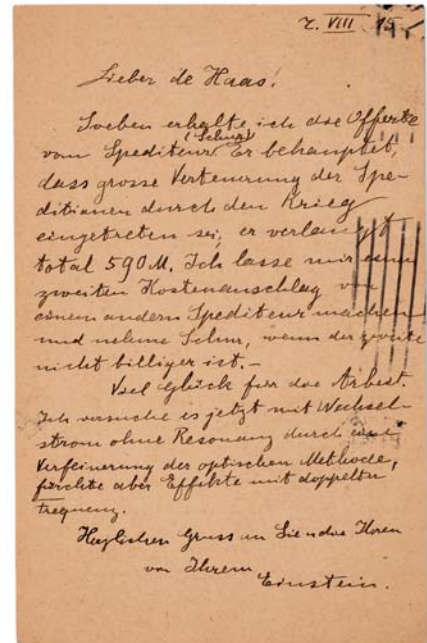 7. VIII 15
Lieber de Haas!
Soeben erhalte ich die Offerte
vom Spediteur (Schur). Er behauptet,
dass grosse Verteuerung der Spe-
ditionen durch den Krieg
eingetreten sei, er verlangt
total 590 M. Ich lasse mir einen
zweiten Kostenanschlag von
einem andern Spediteur machen
und nehme Schur, wenn der zweite
nicht billiger ist. –
Viel Glück für die Arbeit.
Ich versuche es jetzt mit Wechsel-
strom ohne Resonanz durch eine
Verfeinerung der optischen Methode,
fürchte aber Effekte mit doppelter
Frequenz.
Herzlichen Gruss an Sie u. die Ihren
von Ihrem
Einstein.